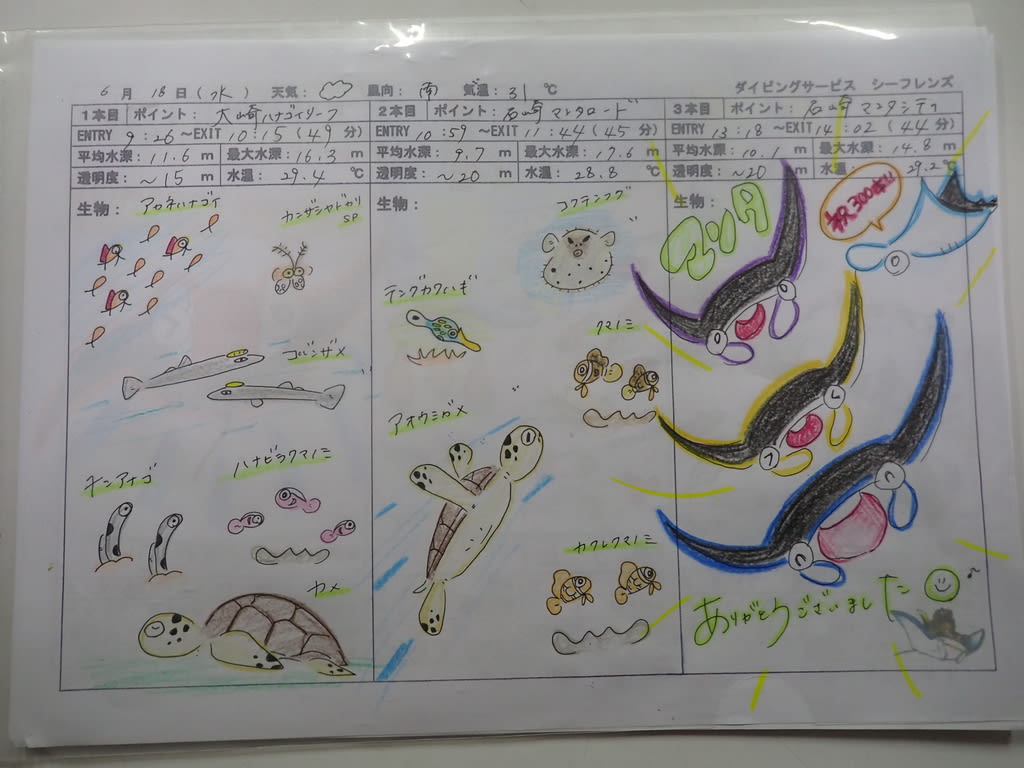 6月 18日(水) 天気: 風向: 南 気温: 31 ℃ ダイビングサービス シーフレンズ
1本目 ポイント: 大崎ハナゴイリーフ
ENTRY 9:26 ～EXIT 10:15 (49分)
平均水深: 11.6 m 最大水深: 16.3 m
透明度: ～15 m 水温: 29.4 ℃
生物: アカネハナゴイ
カンザシヤドカリ
SP
コバンザメ
チンアナゴ
ハナビラクマノミ
カメ
2本目 ポイント: 石崎マンタロード
ENTRY 10:59 ～EXIT 11:44 (45分)
平均水深: 9.7 m 最大水深: 17.6 m
透明度: ～20 m 水温: 28.8 ℃
生物:
コクテンフグ
テングカワハギ
クマノミ
アオウミガメ
カクレクマノミ
3本目 ポイント: 石崎マンタシティ
ENTRY 13:18 ～EXIT 14:02 (44分)
平均水深: 10.1 m 最大水深: 14.8 m
透明度: ～20 m 水温: 29.2 ℃
生物:
マンタ
祝300本!!
ありがとうございました